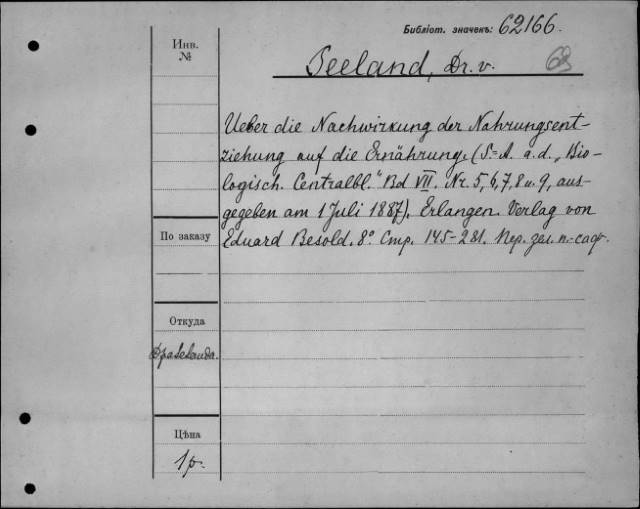 Библіот. значекъ: 62166.
Инв.
№
Seeland, Dr. v.
Ueber die Nachwirkung der Nahrungsent-
ziehung auf die Ernährung. (S.-A. a. d. „Bio-
logisch. Centralbl." Bd VII. Nr. 5, 6, 7, 8 u. 9, aus-
gegeben am 1 Juli 1887). Erlangen. Verlag von
Eduard Besold. 8° Стр. 145-281. Пер. зел. п.-саф.
По заказу
Откуда
Цѣна
1 р.